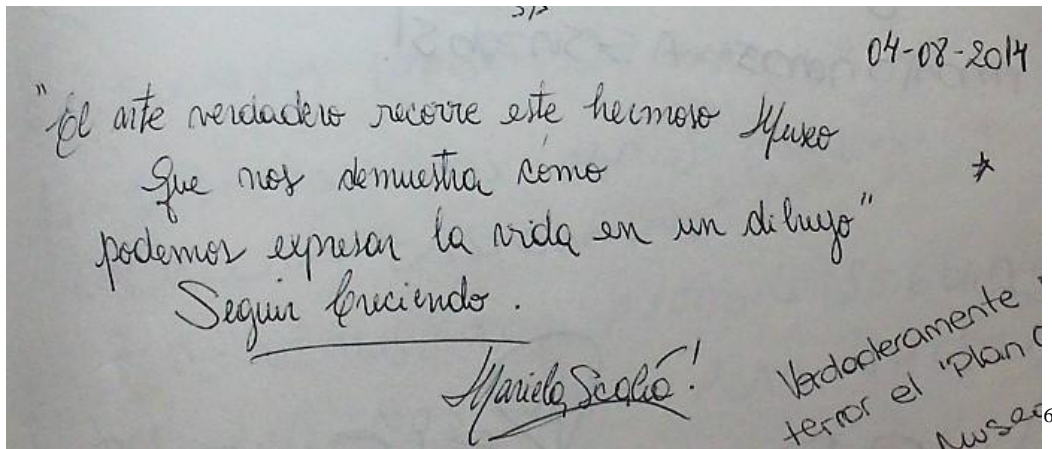 04-08-2014
"El arte verdadero recorre este hermoso Museo
Que nos demuestra cómo
podemos expresar la vida en un dibuyo"
Seguir Creciendo.
Mariela Scaló!
Verdaderamente
terror el "Plan C
Museo
6